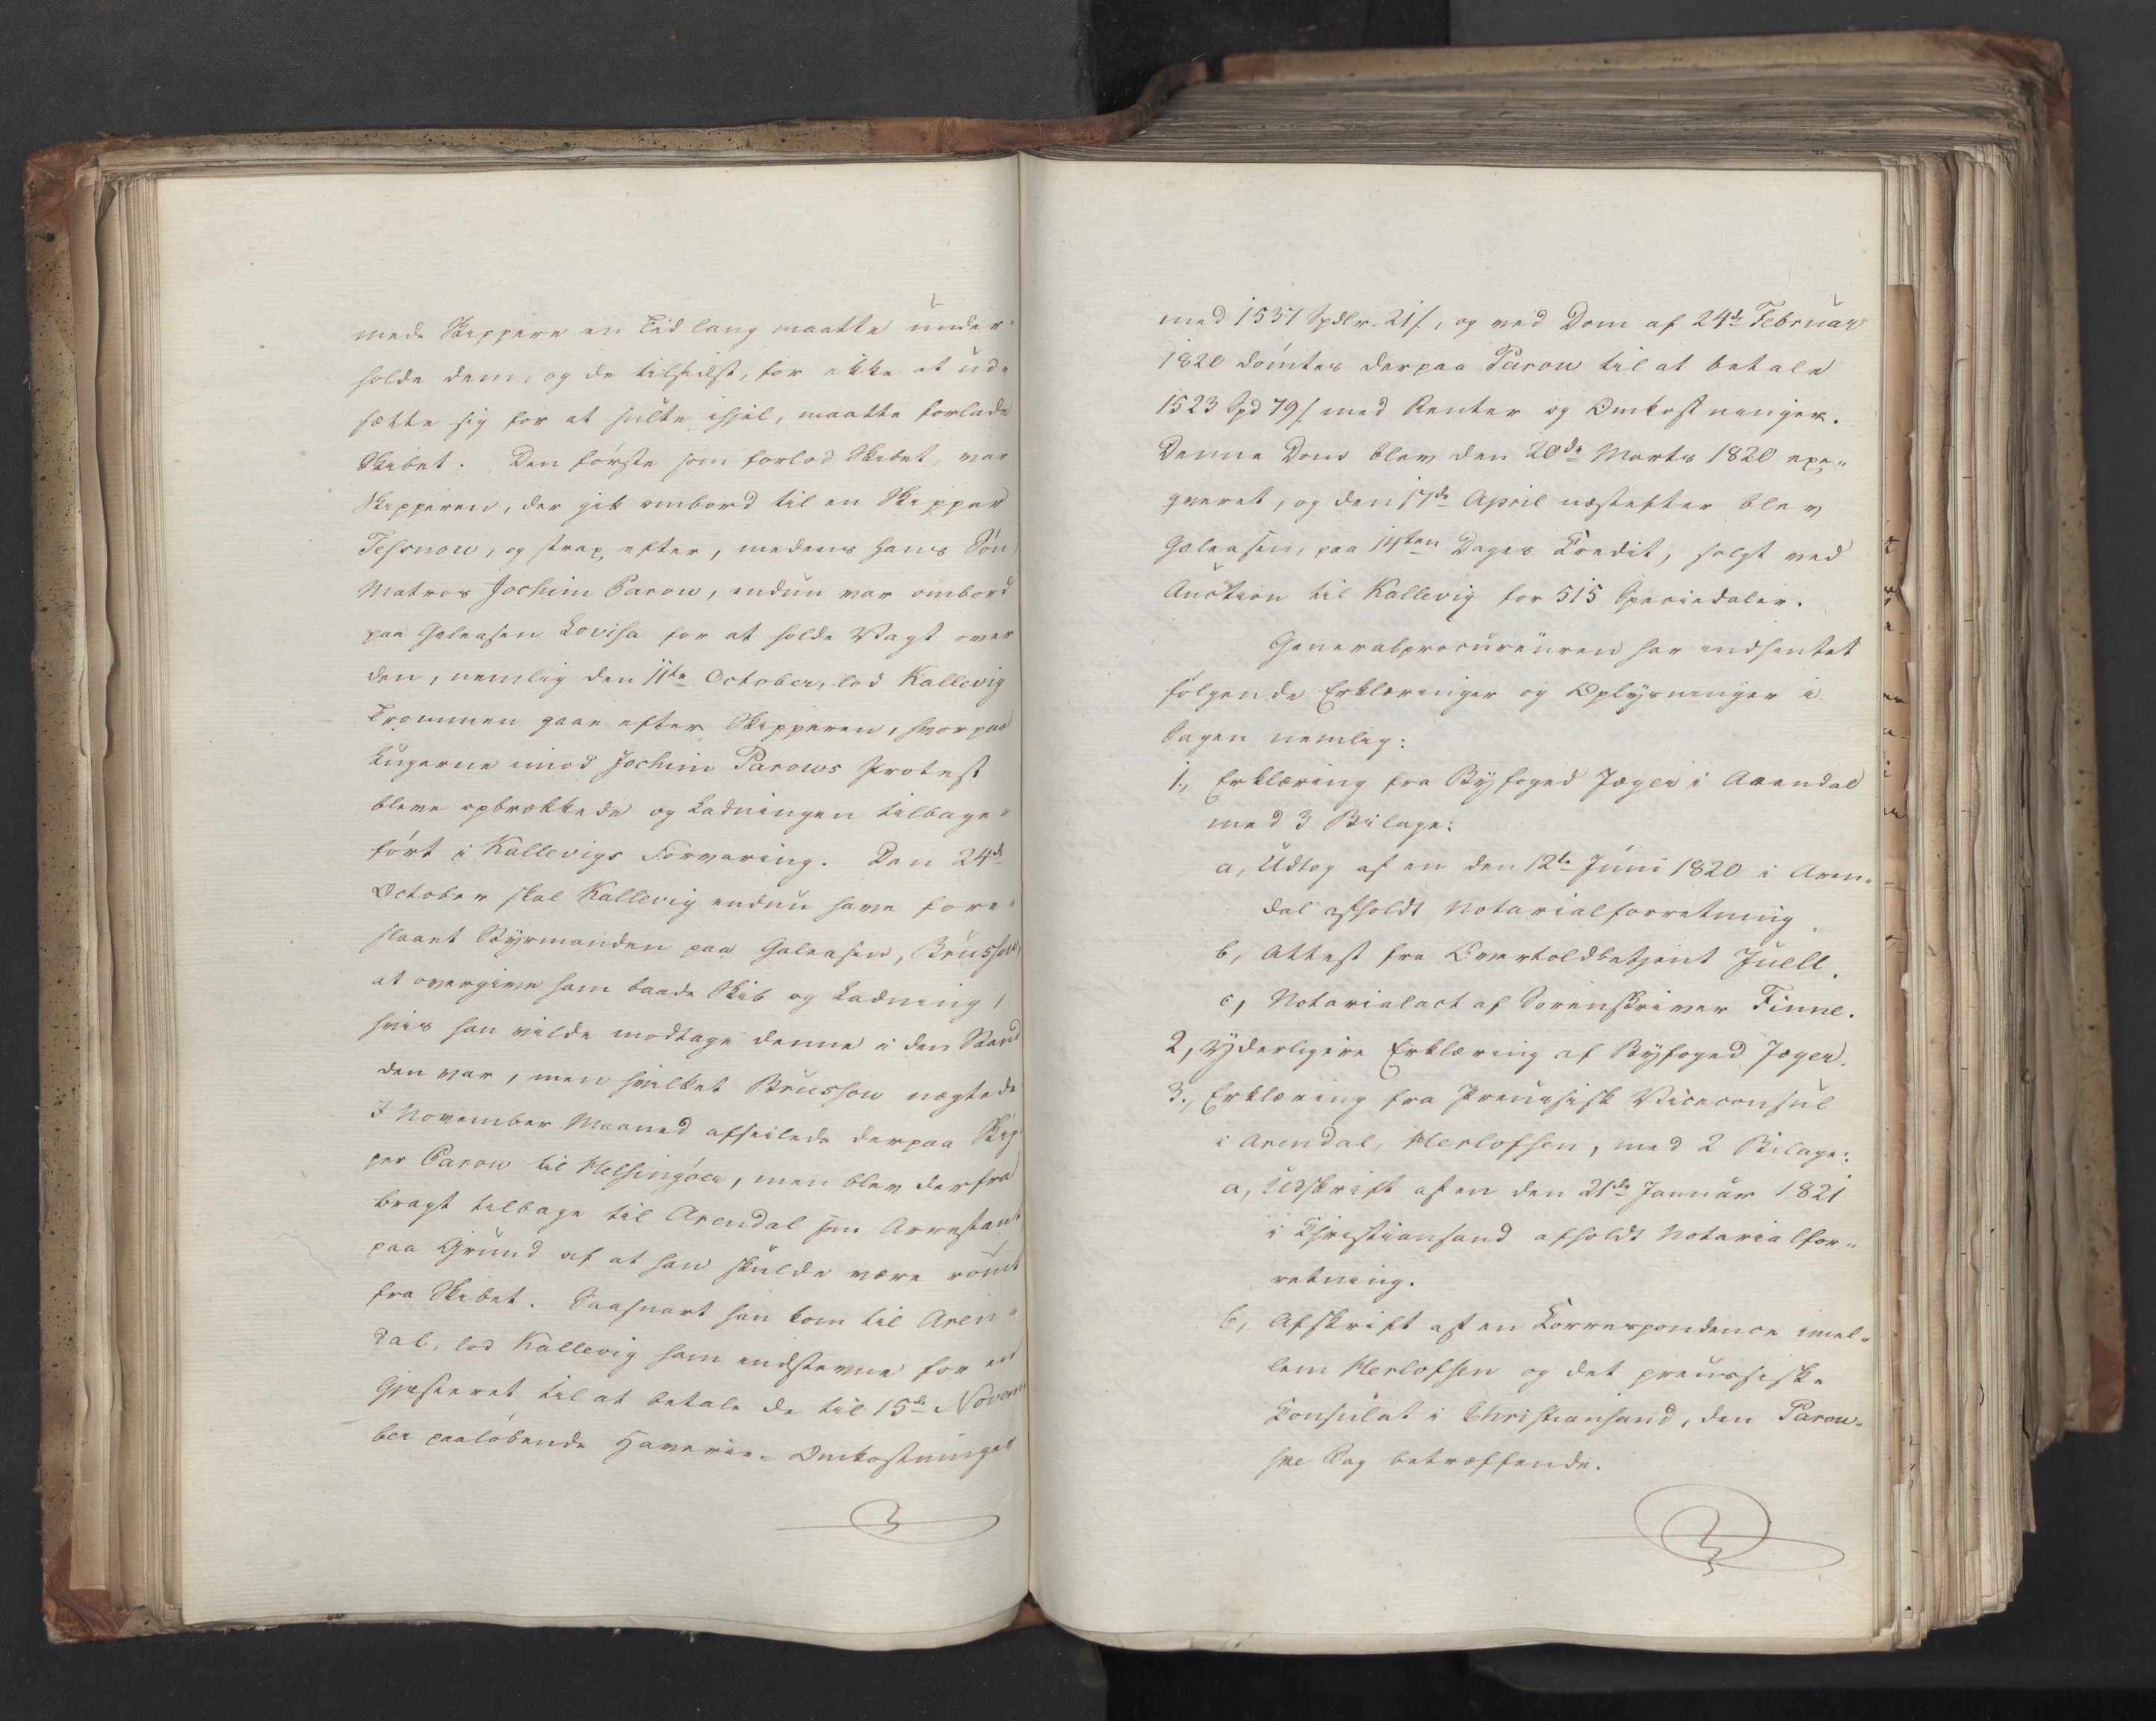 mede Skippere en Tid lang maatte under-
holde dem, og de tilsidst, for ikke at ud-
sætte sig for at sulte ihjel, maatte forlade
Skibet. Den første som forlod Skibet, var
Skipperen, der gik ombord til en Skipper
Tessnow, og strax efter, medens hans Søn
Matros Jochim Parow, endnu var ombord
paa Galeasen Lovisa for at holde Vagt over
den, nemlig den 11te October, lod Kallevig
Trommen gaae efter Skipperen, hvorpaa
Lugerne imod Jochim Parows Protest
bleve opbrækkede og Ladningen tilbage-
ført i Kallevigs Forvaring. Den 24de
October skal Kallevig endnu have fore-
slaaet Styrmanden paa Galeasen, Brussow,
at overgive ham baade Skib og Ladning,
hvis han vilde modtage denne i den Stand
den var, men hvilket Brussow nægtede
I November Maaned afseilede derpaa Skip-
per Parow til Helsingøer, men blev derfra
bragt tilbage til Arendal som Arrestant
paa Grund af at han skulde være rømt
fra Skibet. Saasnart han kom til Aren-
dal, lod Kallevig ham indstevne for en
Gjesteret til at betale de til 15de Novem-
ber paaløbende Haverie-Omkostninger
med 1537 Spdlr. 21 s, og ved Dom af 24de Februar
1820 dømtes derpaa Parow til at betale
1523 Spd 79 s med Renter og Omkostninger.
Denne Dom blev den 20de Marts 1820 exe-
qveret, og den 17de April næstefter blev
Galeasen, paa 14ten Dages Credit, solgt ved
Auction til Kallevig for 515 Speciedaler.
Generalprocureuren har indhentet
følgende Erklæringer og Oplysninger i
Sagen nemlig:
1., Erklæring fra Byfoged Jæger i Arendal
med 3 Bilage:
a, Udtog af en den 12te Juni 1820 i Aren-
dal afholdt Notarialforretning.
b, Attest fra Overtoldbetjent Juell.
c, Notarialact af Sorenskriver Finne.
2, Yderligere Erklæring af Byfoged Jæger.
3., Erklæring fra Preusisk Viceconsul
i Arendal, Herlofsen, med 2 Bilage:
a, Udskrift af en den 21de Januar 1821
i Christiansand afholdt Notarialfor-
retning.
b, Afskrift af en Correspondence imel-
lem Herlofsen og det preussiske
Consulat i Christiansand, den Parow-
ske Sag betræffende.